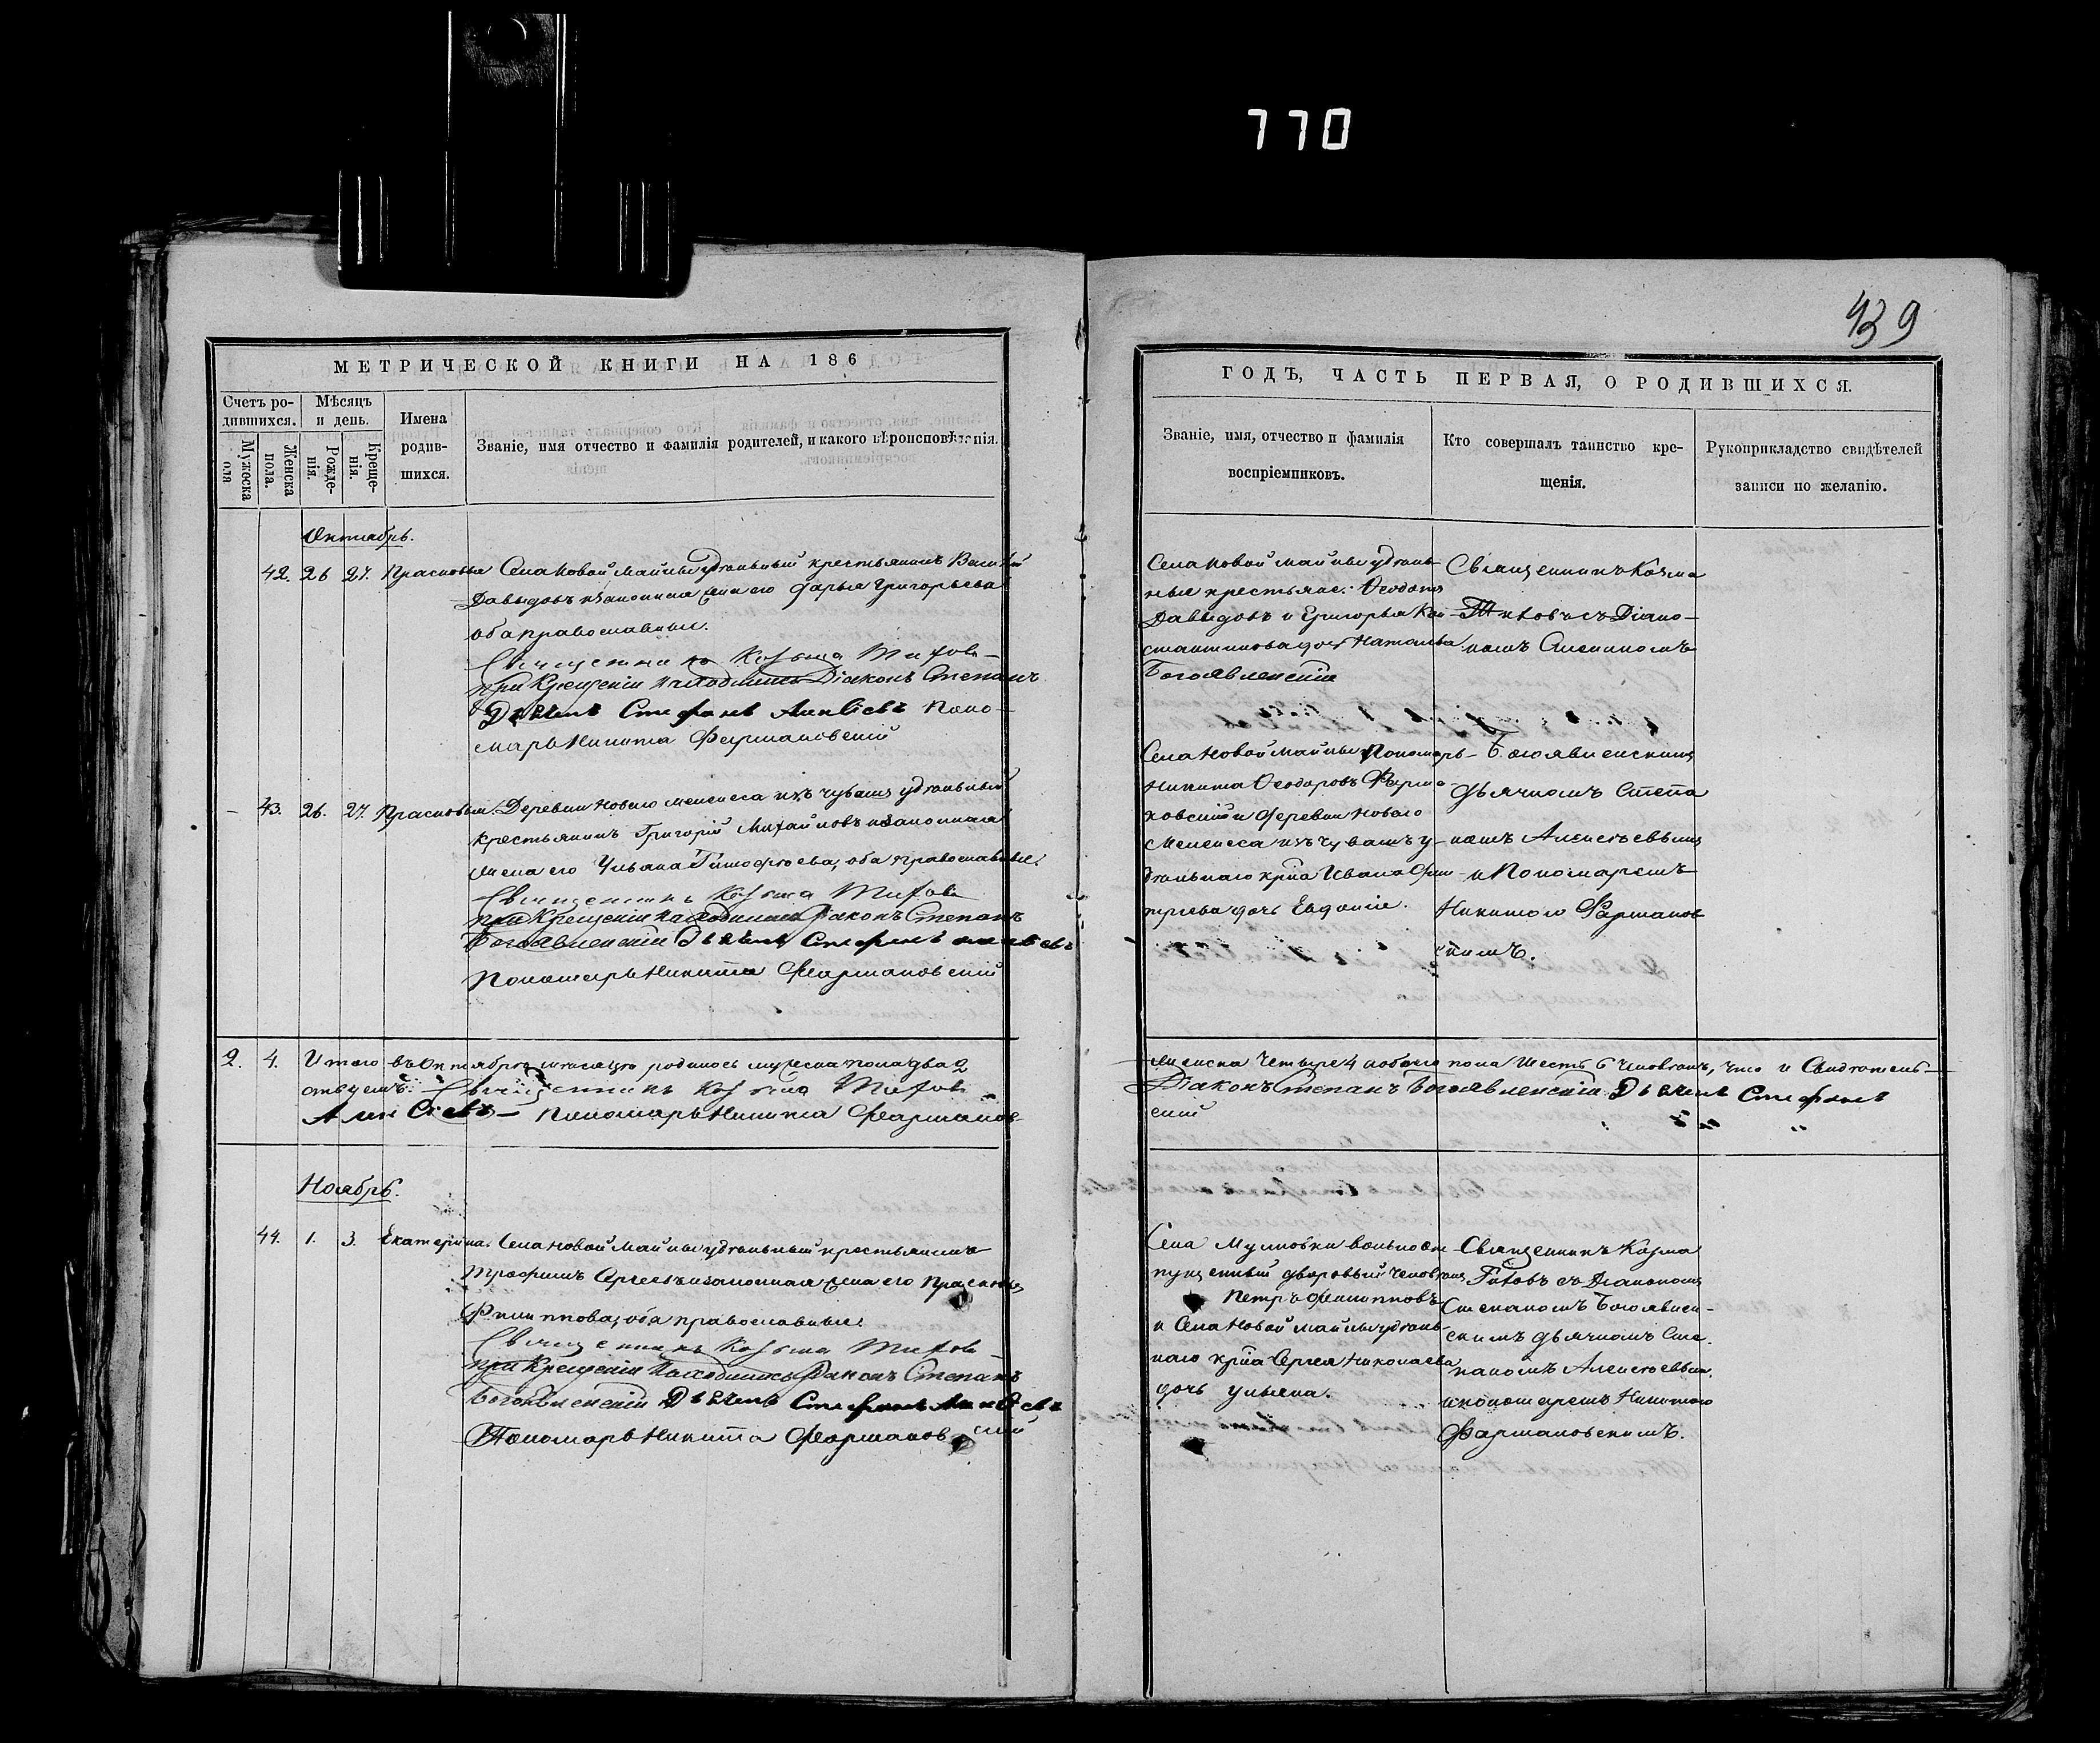 770
439
МЕТРИЧЕСКОЙ КНИГИ НА 186
Счетъ ро-
дившихся.
Мужоска
пола
Женска
пола.
Мѣсяцъ
и день.
Рожде-
нія.
Креще-
нія.
Имена
родив-
шихся.
Званіе, имя отчество и фамилія родителей, и какого вѣроисповѣданія.
Октябрь.
42. 26 27. Прасковья Села Новой Майны удѣльный крестьянинъ Василій
Давыдовъ и законная жена его Дарья Григорьева
оба православные.
Священникъ Козьма Титовъ
при Крещеніи находились Діаконъ Степанъ
Дьячекъ Стефанъ Алексѣевъ Поно-
марь Никита Фармаковскій
43. 26. 27. Прасковья. Деревни Новаго Мелекеса изъ чувашъ удѣльный
крестьянинъ Григорій Михайловъ и законная
жена его Ульяна Тимофѣева, оба православные.
Священникъ Козьма Титовъ
при Крещеніи находились Діаконъ Степанъ
Богоявленскій Дьячекъ Стефанъ Алексѣевъ
Пономарь Никита Фармаковскій
2. 4. Итого въ Октябрѣ мѣсяцѣ родилось мужеска пола два 2
Священникъ Козьма Титовъ
Алексѣевъ – Пономарь Никита Фармаков-
Ноябрь.
44. 1. 3. Екатерина. Села Новой Майны удѣльный крестьянинъ
Трофимъ Сергѣевъ и законная жена его Прасковья
Филиппова, оба православные.
Священникъ Козьма Титовъ
при Крещеніи находились Діаконъ Степанъ
Богоявленскій Дьячекъ Стефанъ Алексѣевъ
Пономарь Никита Фармаковскій
ГОДЪ, ЧАСТЬ ПЕРВАЯ, О РОДИВШИХСЯ.
Званіе, имя, отчество и фамилія
воспріемниковъ.
Кто совершалъ таинство кре-
щенія.
Рукоприкладство свидѣтелей
записи по желанію.
Села Новой Майны удѣль-
ные крестьяне: Ѳеодотъ
Давыдовъ и Григорья Кон-
стантинова дочь Наталья
Богоявленскій
Священникъ Козма
Титовъ съ Діако-
номъ
Села Новой Майны Пономарь
Никита Ѳеодоровъ Фарма-
ковскій и деревни Новаго
Мелекеса изъ чувашъ у-
дѣльнаго кр҃на Ивана Дми-
тріева дочь Евдокія.
Богоявленскимъ
дьячкомъ Степа
номъ Алексѣевымъ
и Пономаремъ
Никитою Фармаков
скимъ.
женска четыре 4 обоего пола шесть 6 человѣкъ, что и свидѣтель-
Діаконъ Степанъ Богоявленскій Дьячекъ Стефанъ
скій
Села Мулловки вольноот-
пущенный дворовый человѣкъ
Петръ Филипповъ
и Села Новой Майны удѣль-
наго кр҃на Сергѣя Николаева
дочь Ульяна.
Священникъ Козма
Титовъ съ Діакономъ
Степаномъ Богоявлен-
скимъ дьячкомъ Сте-
паномъ Алексѣевымъ
и пономаремъ Никитою
Фармаковскимъ.